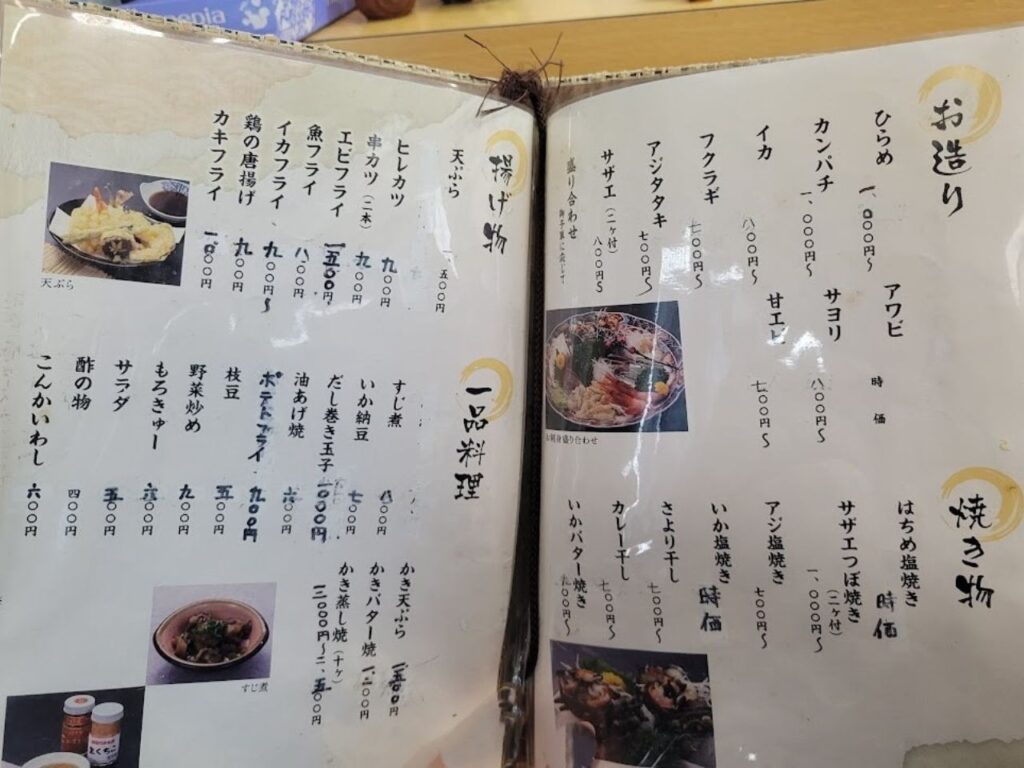 お造り
ひらめ 一、〇〇〇円〜
カンパチ 一、〇〇〇円〜
イカ 八〇〇円〜
フクラギ 七〇〇円〜
アジタタキ 七〇〇円〜
サザエ(二ケ付) 八〇〇円〜
盛り合わせ
アワビ 時価
サヨリ 八〇〇円〜
甘エビ 七〇〇円〜
お刺身盛り合わせ
焼き物
はちめ塩焼き 時価
サザエつぼ焼き(二ケ付) 一、〇〇〇円〜
アジ塩焼き 七〇〇円〜
いか塩焼き 時価
さより干し 七〇〇円〜
カレー干し 七〇〇円〜
いかバター焼き 〇〇円〜
揚げ物
天ぷら 一、五〇〇円
ヒレカツ 九〇〇円
串カツ(二本) 九〇〇円
エビフライ 一五〇〇円
魚フライ 八〇〇円
イカフライ 九〇〇円〜
鶏の唐揚げ 九〇〇円
カキフライ 一〇〇〇円
天ぷら
一品料理
すじ煮 八〇〇円
いか納豆 七〇〇円
だし巻き玉子 1000円
油あげ焼 六〇〇円
ポテトフライ 九〇〇円
枝豆 五〇〇円
野菜炒め 九〇〇円
もろきゅー 六〇〇円
サラダ 五〇〇円
酢の物 四〇〇円
こんかいわし 六〇〇円
かき天ぷら 一、五〇〇円
かきバター焼 一、二〇〇円
かき蒸し焼(十ケ) 二、五〇〇円
すじ煮